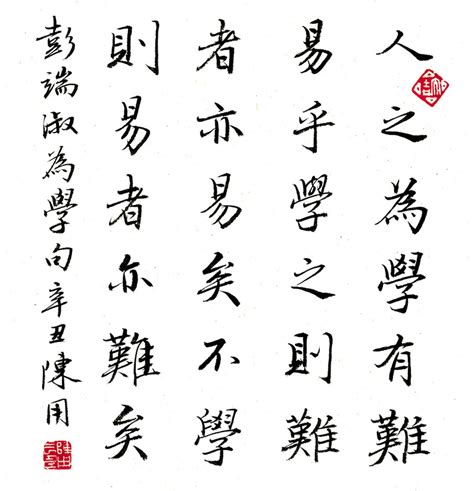 人之為學有難
易乎學之則難
者亦易矣不學
則易者亦難矣
彭端淑為學句辛丑陳用